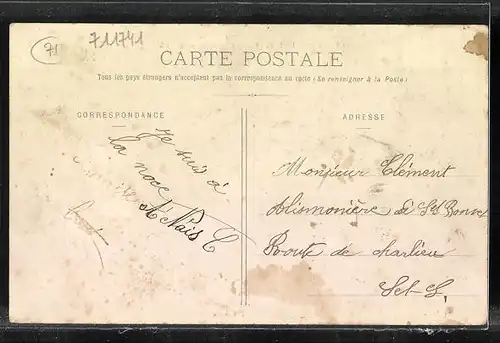 71
711741
CARTE POSTALE
Tous les pays étrangers n'acceptent pas la correspondance au recto (Se renseigner à la Poste)
CORRESPONDANCE
ADRESSE
Je suis à
la noce
C
Monsieur Clément
à St Bonnet
Route de charlieu